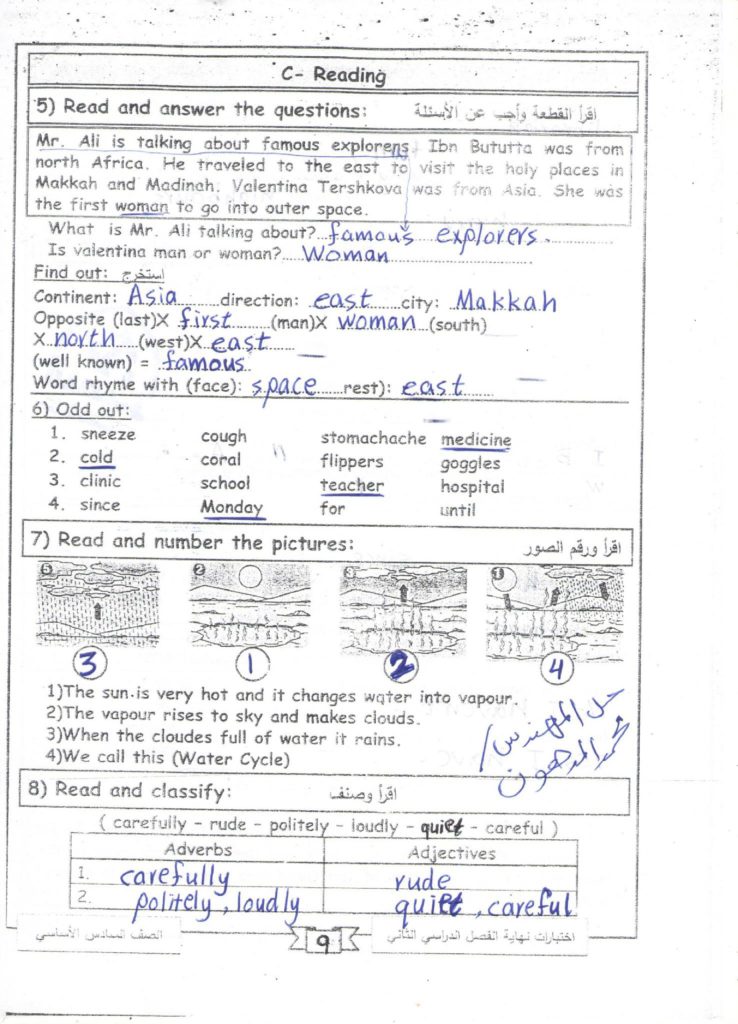 C- Reading
5) Read and answer the questions: اقرأ القطعة وأجب عن الأسئلة
Mr. Ali is talking about famous explorers. Ibn Bututta was from
north Africa. He traveled to the east to visit the holy places in
Makkah and Madinah. Valentina Tershkova was from Asia. She was
the first woman to go into outer space.
What is Mr. Ali talking about? famous explorers.
Is valentina man or woman? Woman
Find out: استخرج
Continent: Asia direction: east city: Makkah
Opposite (last)X first (man)X woman (south)
X north (west)X east
(well known) = famous
Word rhyme with (face): space rest): east
6) Odd out:
1. sneeze cough stomachache medicine
2. cold coral flippers goggles
3. clinic school teacher hospital
4. since Monday for until
7) Read and number the pictures: اقرأ ورقم الصور
5 2 3 1
3 1 2 4
1)The sun is very hot and it changes water into vapour.
2)The vapour rises to sky and makes clouds.
3)When the cloudes full of water it rains.
4)We call this (Water Cycle)
حل المهندس/
محمد المدهون
8) Read and classify: اقرأ وصنف
( carefully - rude - politely - loudly - quiet - careful )
Adverbs Adjectives
1. carefully rude
2. politely, loudly quiet, careful
اختبارات نهاية الفصل الدراسي الثاني 9 الصف السادس الأساسي